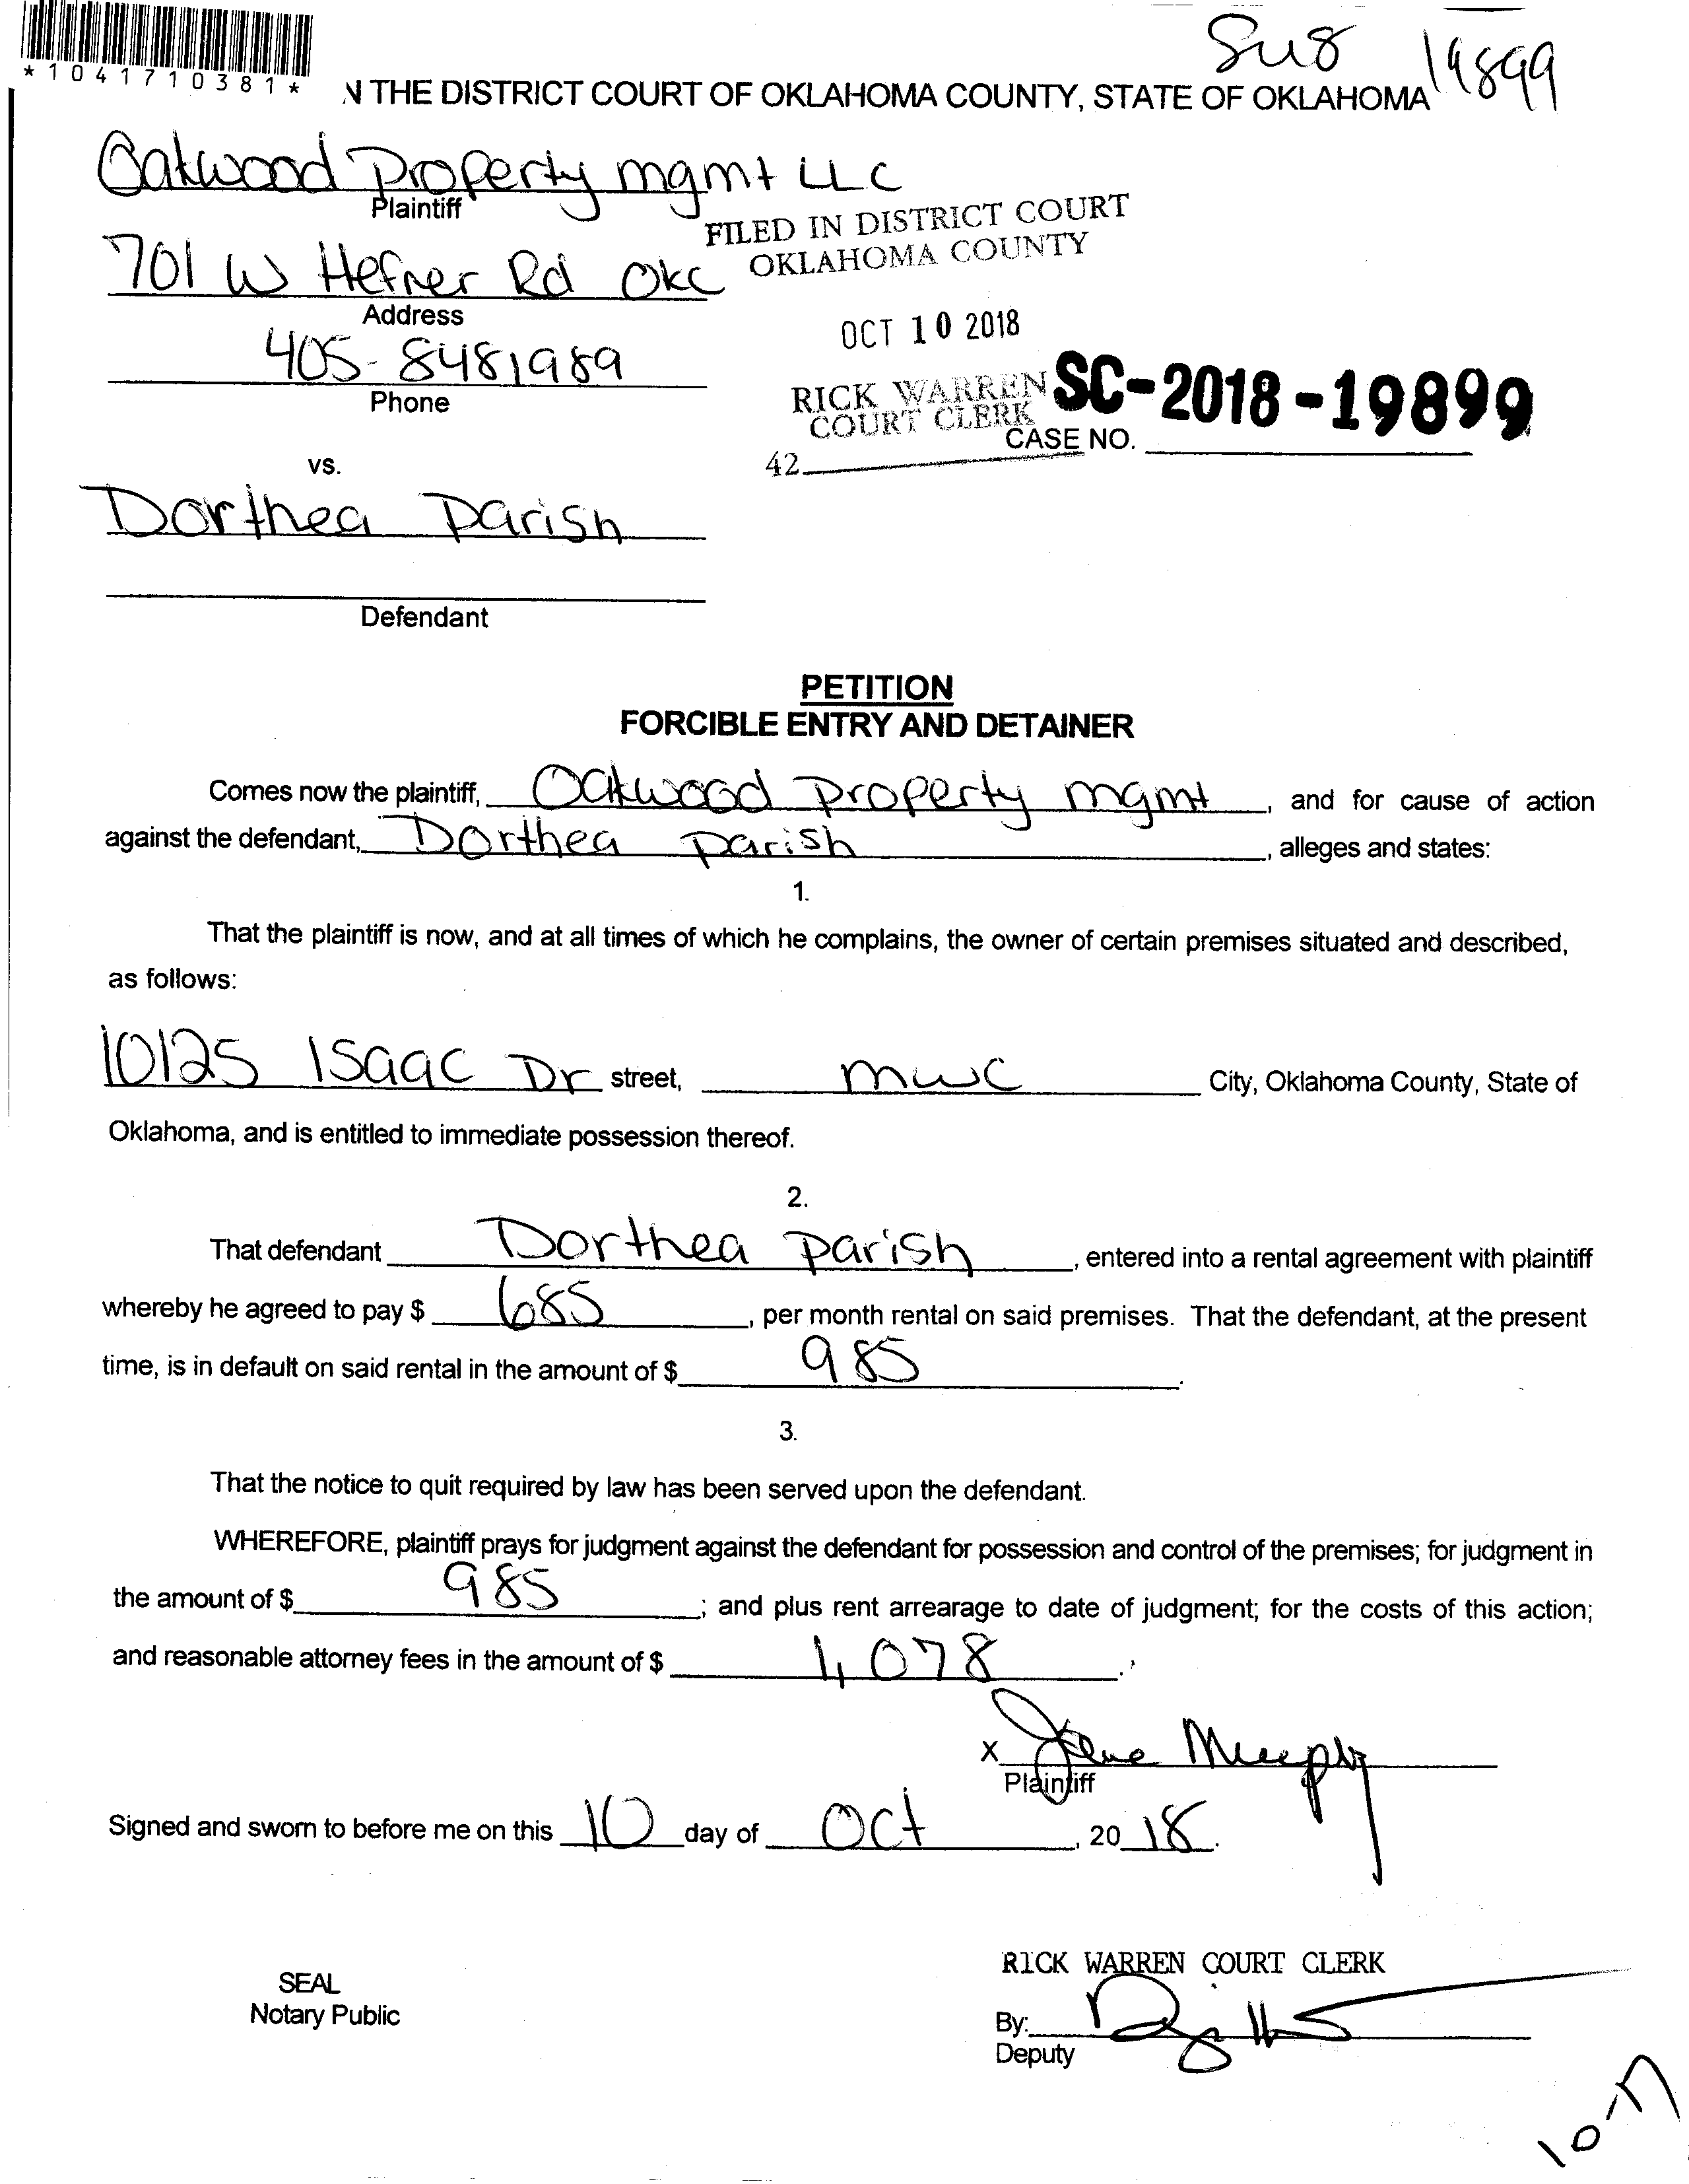 Su8 19899
*1041710381*
N THE DISTRICT COURT OF OKLAHOMA COUNTY, STATE OF OKLAHOMA
Oakwood Property mgmt LLC
Plaintiff
FILED IN DISTRICT COURT
OKLAHOMA COUNTY
701 W Hefner Rd OKC
Address
OCT 10 2018
405-8481989
Phone
RICK WARREN
COURT CLERK
SC-2018-19899
CASE NO.
42
vs.
Dorthea Parish
Defendant
PETITION
FORCIBLE ENTRY AND DETAINER
Comes now the plaintiff, Oakwood Property mgmt, and for cause of action
against the defendant, Dorthea Parish, alleges and states:
1.
That the plaintiff is now, and at all times of which he complains, the owner of certain premises situated and described,
as follows:
10125 Isaac Dr street, mwc City, Oklahoma County, State of
Oklahoma, and is entitled to immediate possession thereof.
2.
That defendant Dorthea Parish, entered into a rental agreement with plaintiff
whereby he agreed to pay $ 685, per month rental on said premises. That the defendant, at the present
time, is in default on said rental in the amount of $ 985.
3.
That the notice to quit required by law has been served upon the defendant.
WHEREFORE, plaintiff prays for judgment against the defendant for possession and control of the premises; for judgment in
the amount of $ 985; and plus rent arrearage to date of judgment; for the costs of this action;
and reasonable attorney fees in the amount of $ 1,078.
X Jane Murphy
Plaintiff
Signed and sworn to before me on this 10 day of Oct, 20 18.
RICK WARREN COURT CLERK
SEAL
Notary Public
By:
Deputy
10-17